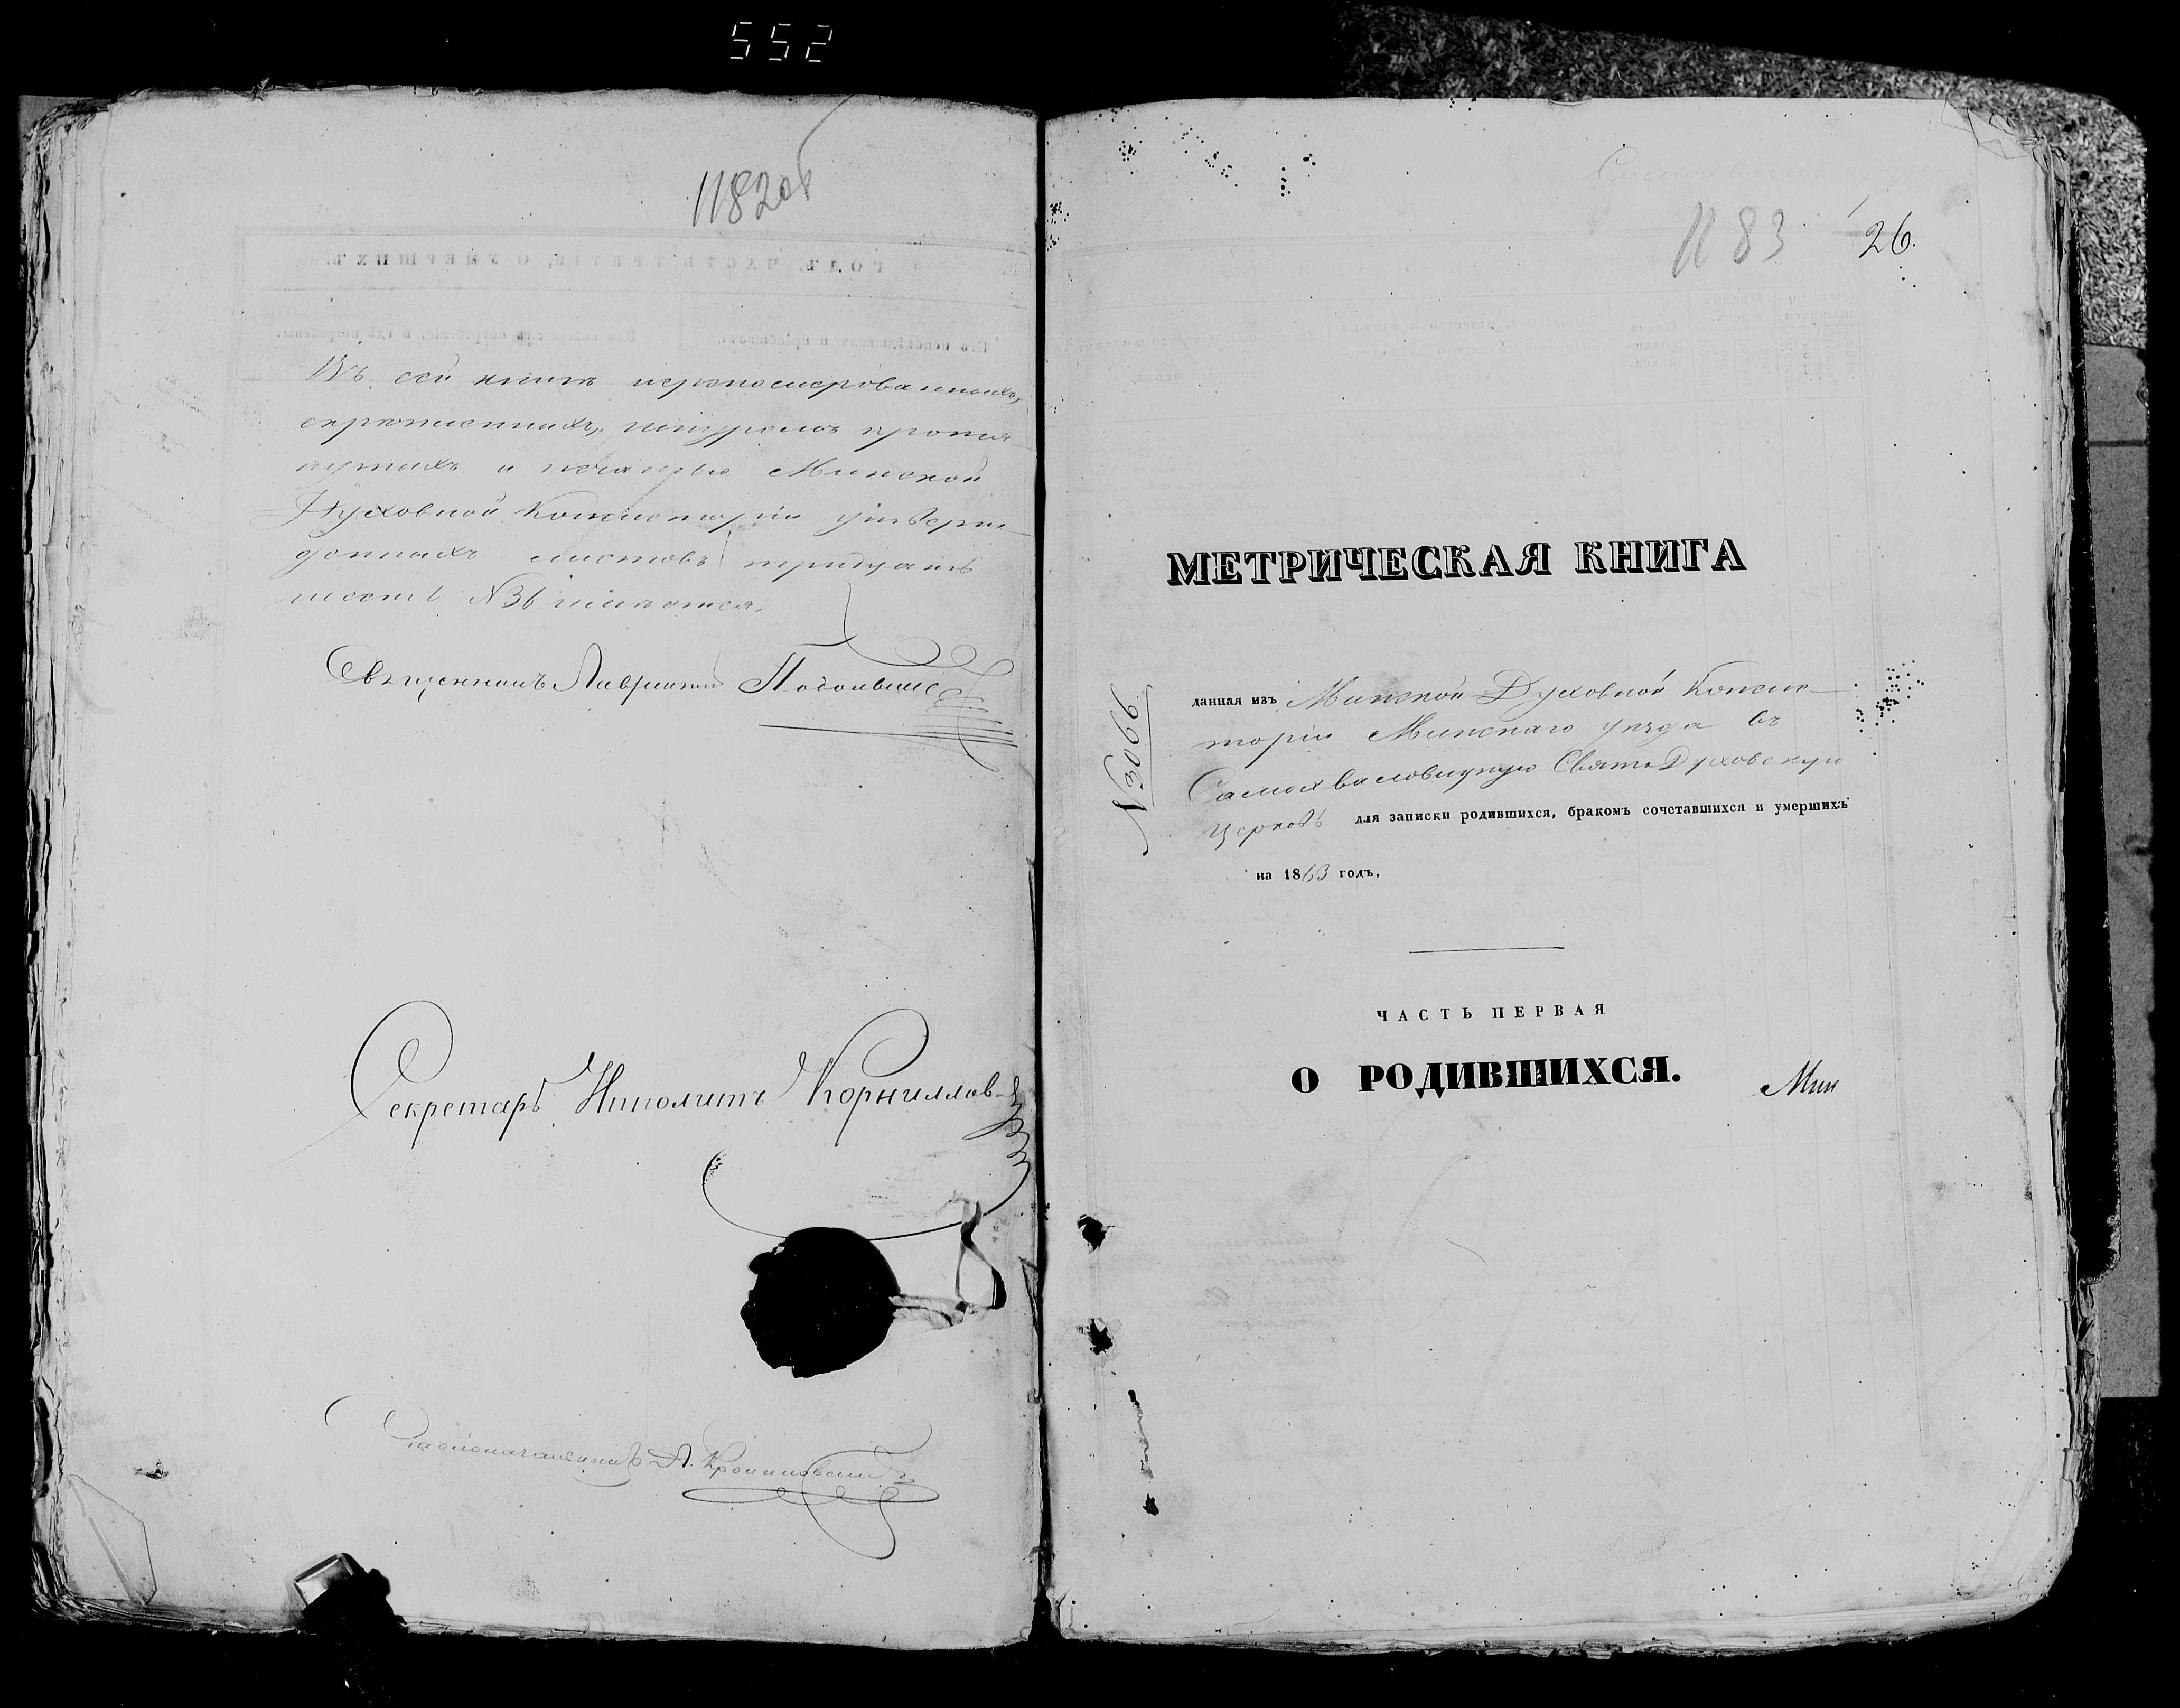 552
1182об
Въ сей книгѣ перенумерованныхъ,
скрѣпленныхъ, шнуромъ протя
нутыхъ и печатью Минской
Духовной Консисторіи утверж
денныхъ листовъ тридцать
шесть N 36 имѣется.
Священникъ Лаврентій
Секретарь Ипполитъ Корниллов
Столоначальникъ А.
1183
26.
МЕТРИЧЕСКАЯ КНИГА
N 3066
данная изъ Минской Духовной Консис
торіи Минскаго уѣзда въ
Самохваловицкую Свято Духовскую
Церковь для записки родившихся, бракомъ сочетавшихся и умершихъ
на 1863 годъ.
ЧАСТЬ ПЕРВАЯ
О РОДИВШИХСЯ.
Мин